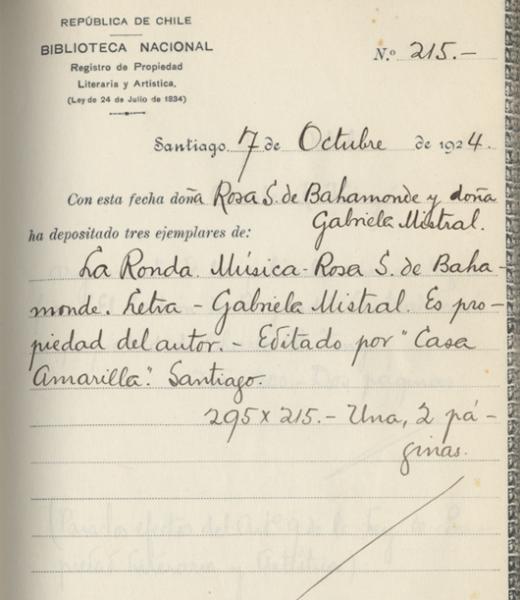 REPÚBLICA DE CHILE
BIBLIOTECA NACIONAL
Registro de Propiedad
Literaria y Artística.
(Ley de 24 de Julio de 1834)
N.º 215.-
Santiago, 7 de Octubre de 1924.
Con esta fecha doña Rosa S. de Bahamonde y doña
Gabriela Mistral.
ha depositado tres ejemplares de:
La Ronda. Música - Rosa S. de Baha-
monde. Letra - Gabriela Mistral. Es pro-
piedad del autor. - Editado por "Casa
Amarilla". Santiago.
295 x 215. - Una, 2 pá-
ginas.